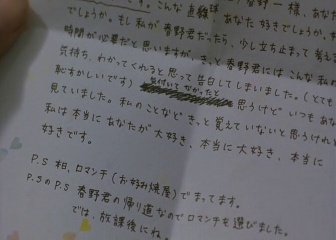 す。こんな直線球あなた好きでしょうか。も
でしょうか。もし私が春野君だったら、少し立ち止まって考え
時間が必要だと思いますが、きっと春野君にはこんな私の
気持ち、わかってくれると思って告白してしまいました。(とても
恥ずかしいです) 思うけど いつもあな
見ていました。私のことなど きっと覚えていないと思うけれど
私は本当にあなたが大好き、本当に大好き、本当に
好きです。
P.S 相、ロマンチ(お好み焼屋)でまってます。
P.SのP.S 春野君の帰り道なのでロマンチを選びました。
では、放課後にね。